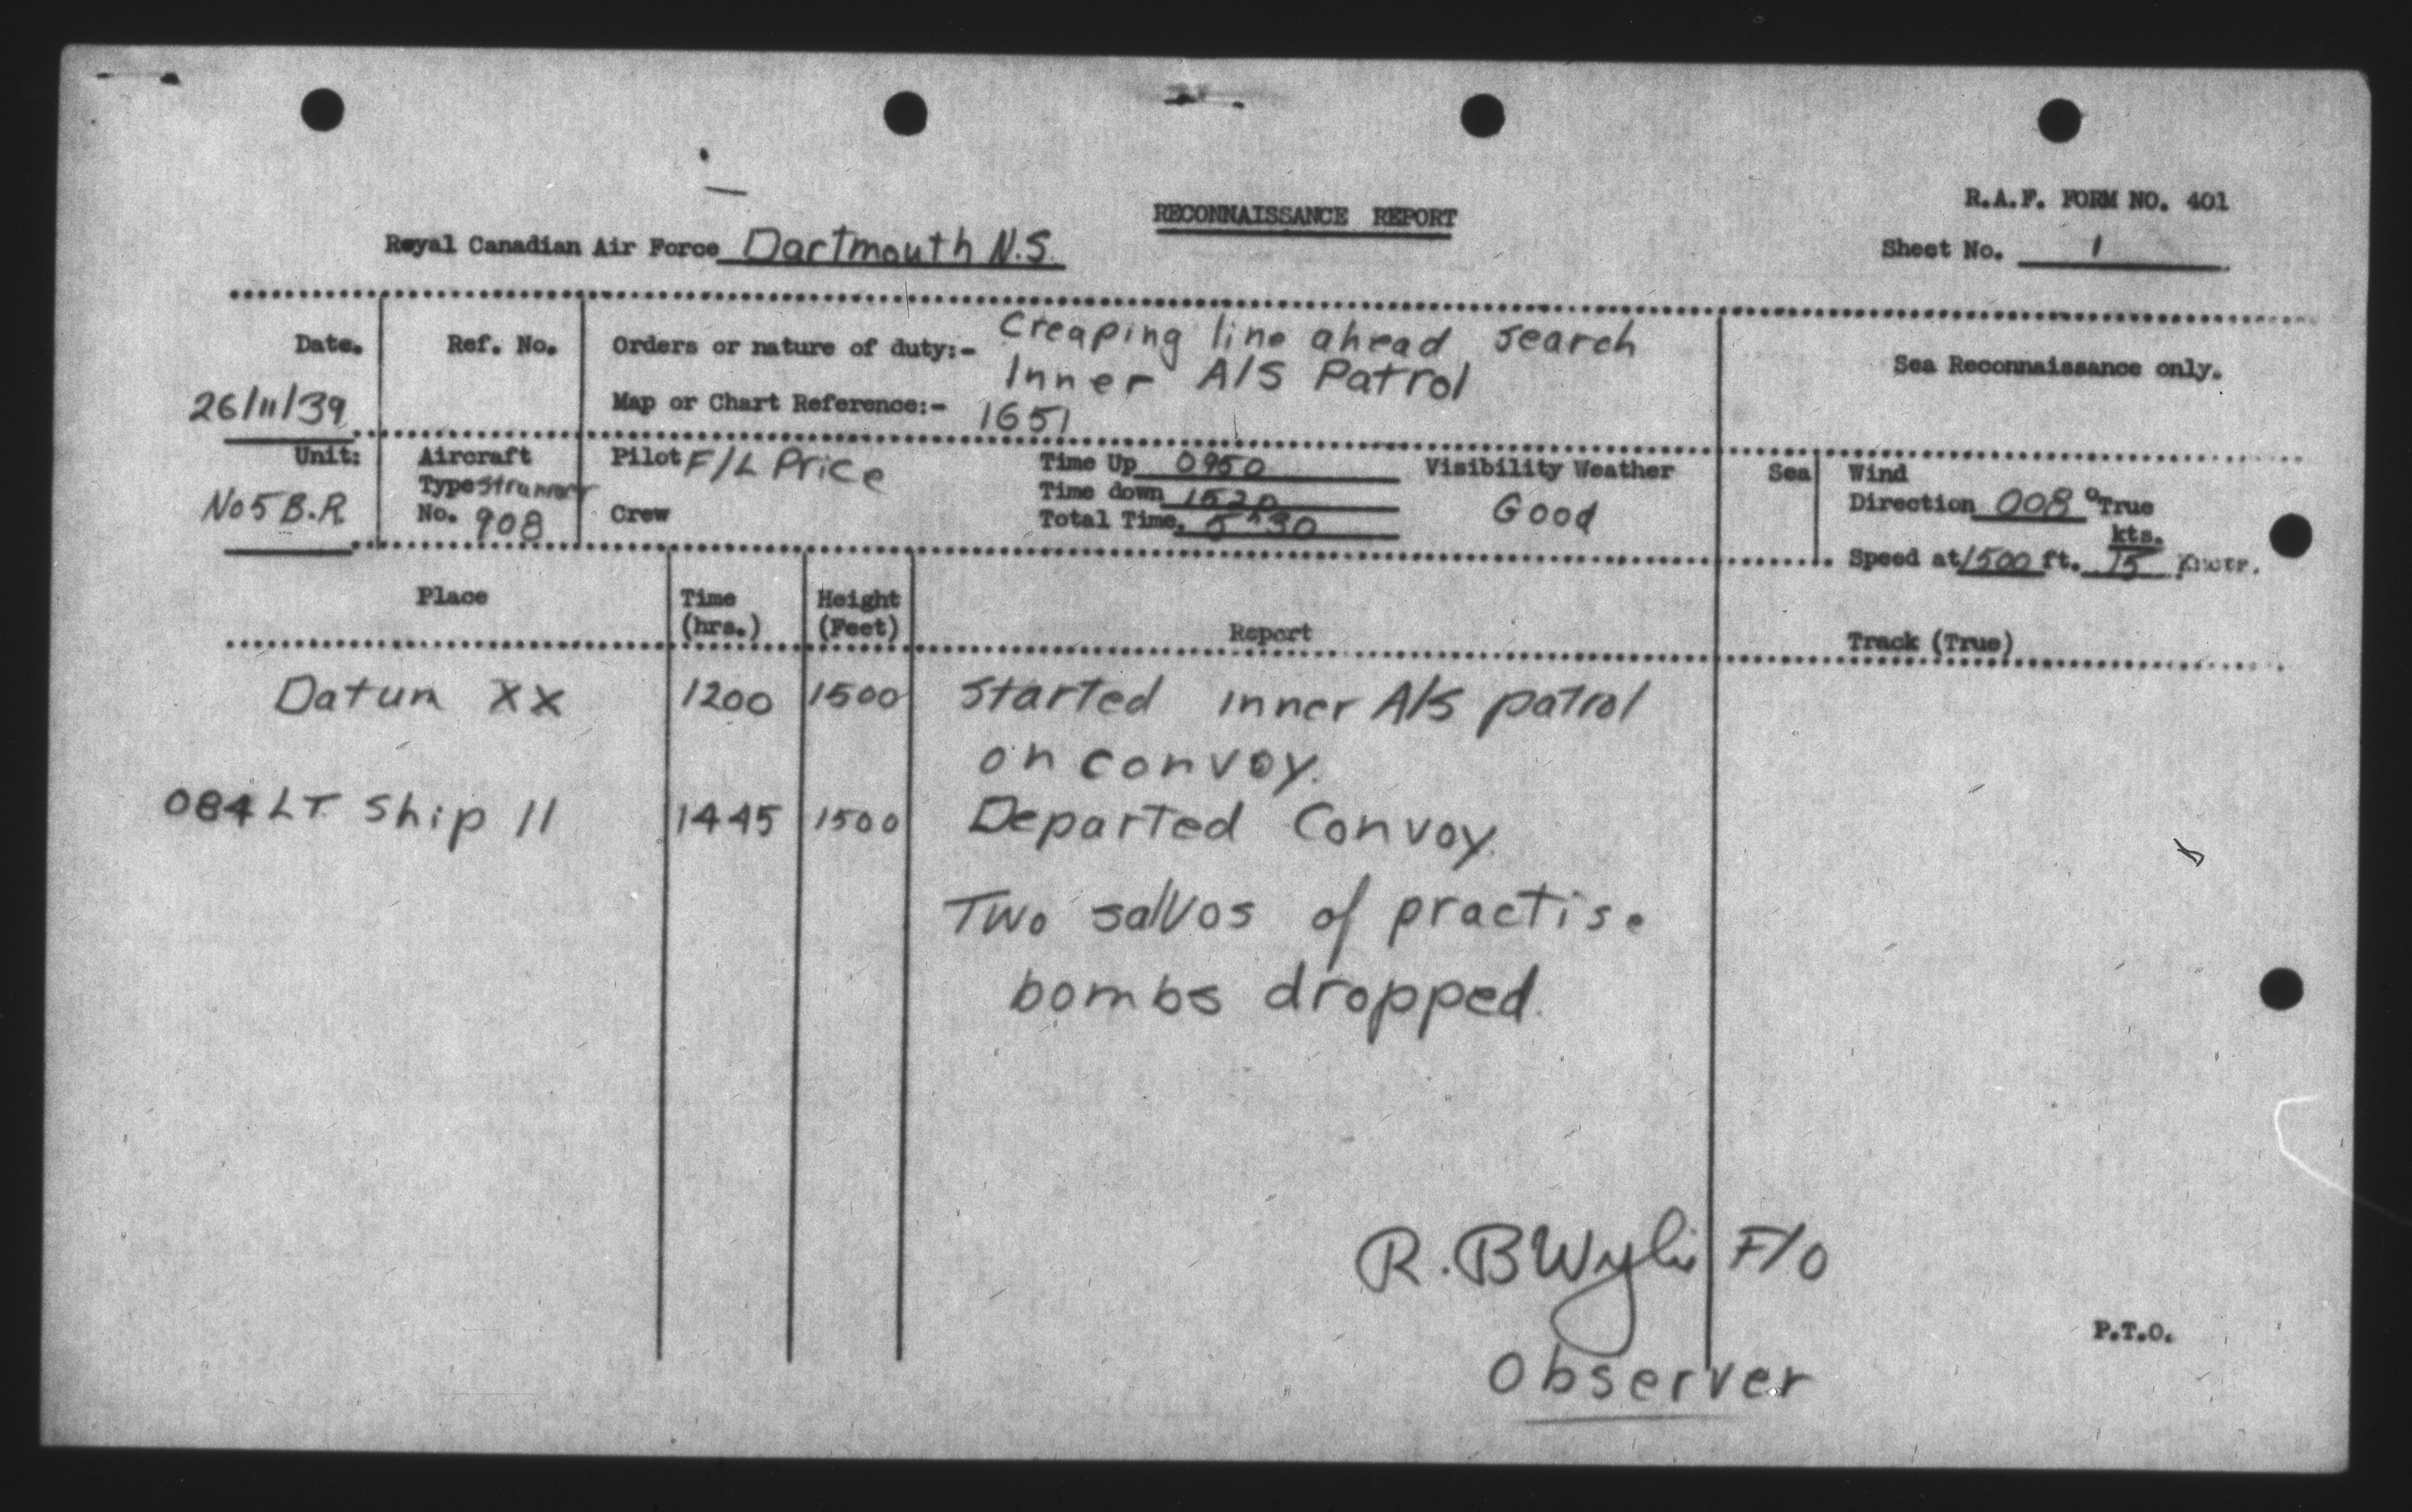 RECONNAISSANCE REPORT
R.A.F. FORM NO. 401
Royal Canadian Air Force Dartmouth N.S.
Sheet No. 1
Date.
26/11/39
Ref. No.
Orders or nature of duty:- Creaping line ahead search
Inner A/S Patrol
Map or Chart Reference:- 1651
Sea Reconnaissance only.
Unit:
No 5 B.R
Aircraft
Type Stranraer
No. 908
Pilot F/L Price
Crew
Time Up 0950
Time down 1520
Total Time. 5 30
Visibility Weather
Good
Sea
Wind
Direction 008 °True
kts.
Speed at 1500 ft. 15
Place
Time
(hrs.)
Height
(Feet)
Report
Track (True)
Datum XX 1200 1500 Started inner A/S patrol
on convoy.
084 LT. Ship 11 1445 1500 Departed Convoy
Two salvos of practise
bombs dropped.
R. B Wylie F/O
Observer
P.T.O.